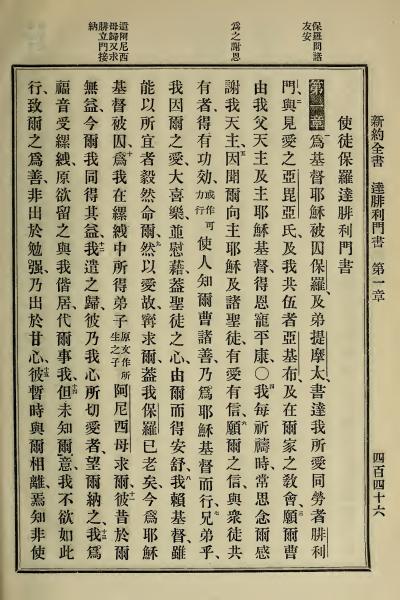 新約全書 達腓利門書 第一章 四百四十六
保羅問諸
友安
爲之謝恩
遣阿尼西
母歸又求
腓立門接
納
使徒保羅達腓利門書
第一章 一爲基督耶穌被囚保羅及弟提摩太書達我所愛同勞者腓利
門、二與見愛之亞毘亞氏及我共伍者亞基布及在爾家之敎會三願爾曹
由我父天主及主耶穌基督得恩寵平康○四我每祈禱時常思念爾感
謝我天主、五因聞爾向主耶穌及諸聖徒有愛有信、六願爾之信與衆徒共
有者得有功効或作可力行使人知爾曹諸善乃爲耶穌基督而行、七兄弟乎、
我因爾之愛大喜樂、並慰藉蓋聖徒之心由爾而得安舒、八我賴基督雖
能以所宜者毅然命爾、九然以愛故寧求爾蓋我保羅已老矣今爲耶穌
基督被囚、十爲我在縲絏中所得弟子原文作所生之子阿尼西母求爾、十一彼昔於爾
無益今爾我同得其益、十二我遣之歸彼乃我心所切愛者望爾納之、十三我爲
福音受縲絏原欲留之與我偕居代爾事我、十四但未知爾意、我不欲如此
行、致爾之爲善非出於勉强、乃出於甘心、十五彼暫時與爾相離、焉知非使